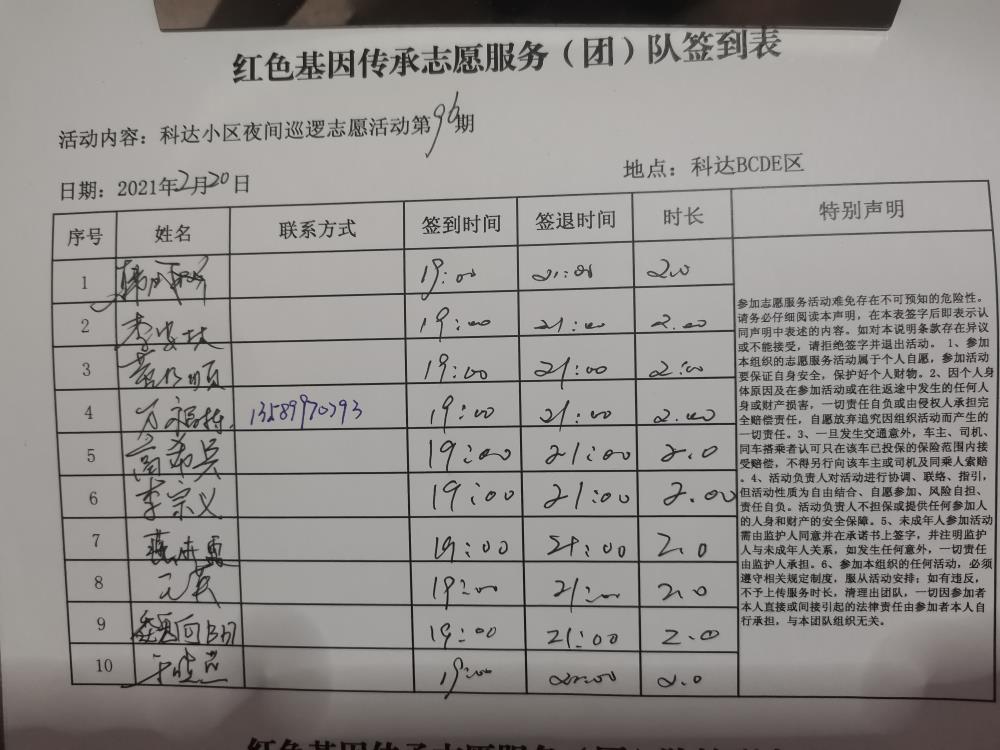 红色基因传承志愿服务（团）队签到表
活动内容：科达小区夜间巡逻志愿活动第96期
日期：2021年2月20日
地点：科达BCDE区
序号 姓名 联系方式 签到时间 签退时间 时长 特别声明
1 19:00 21:00 2.0
2 19:00 21:00 2.00
3 19:00 21:00 2.00
4 13589970793 19:00 21:00 2.00
5 高希兵 19:00 21:00 2.0
6 李宗义 19:00 21:00 2.00
7 19:00 21:00 2.0
8 19:00 21:00 2.0
9 19:00 21:00 2.0
10 19:00 21:00 2.0
参加志愿服务活动难免存在不可预知的危险性。
请务必仔细阅读本声明，在本表签字后即表示认
同声明中表述的内容。如对本说明条款存在异议
或不能接受，请拒绝签字并退出活动。 1、参加
本组织的志愿服务活动属于个人自愿，参加活动
要保证自身安全，保护好个人财物。2、因个人身
体原因及在参加活动或在往返途中发生的任何人
身或财产损害，一切责任自负或由侵权人承担完
全赔偿责任，自愿放弃追究因组织活动而产生的
一切责任。3、一旦发生交通意外，车主、司机、
同车搭乘者认可只在该车已投保的保险范围内接
受赔偿，不得另行向该车主或司机及同乘人索赔
。4、活动负责人对活动进行协调、联络、指引，
但活动性质为自由结合、自愿参加、风险自担、
责任自负。活动负责人不担保或提供任何参加人
的人身和财产的安全保障。5、未成年人参加活动
需由监护人同意并在承诺书上签字，并注明监护
人与未成年人关系，如发生任何意外，一切责任
由监护人承担。6、参加本组织的任何活动，必须
遵守相关规定制度，服从活动安排；如有违反，
不予上传服务时长，清理出团队，一切因参加者
本人直接或间接引起的法律责任由参加者本人自
行承担，与本团队组织无关。